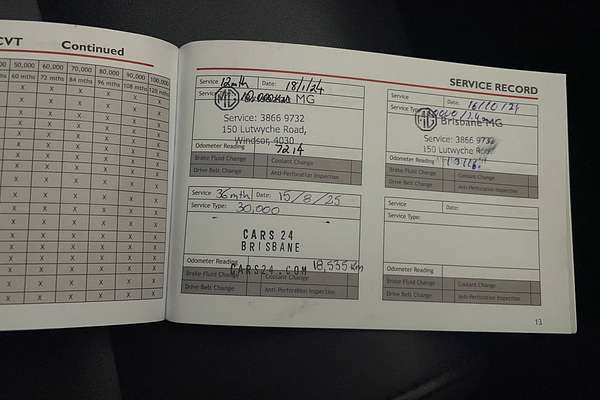 CVT Continued
50,000 60,000 70,000 80,000 90,000 100,000
60 mths 72 mths 84 mths 96 mths 108 mths 120 mths
SERVICE RECORD
Service 12mth Date: 18/1/24
MG
Service: 3866 9732
150 Lutwyche Road,
Windsor, 4030
Odometer Reading 7214
Brake Fluid Change Coolant Change
Drive Belt Change Anti-Perforation Inspection
Service Date: 16/10/24
Service Type:
Brisbane MG
Service: 3866 9732
150 Lutwyche Road
Odometer Reading
Brake Fluid Change Coolant Change
Drive Belt Change Anti-Perforation Inspection
Service 36mth Date: 15/8/25
Service Type: 30,000
CARS24
BRISBANE
Odometer Reading 18,535km
CARS24.COM
Brake Fluid Change Coolant Change
Drive Belt Change Anti-Perforation Inspection
Service Date:
Service Type:
Odometer Reading
Brake Fluid Change Coolant Change
Drive Belt Change Anti-Perforation Inspection
13